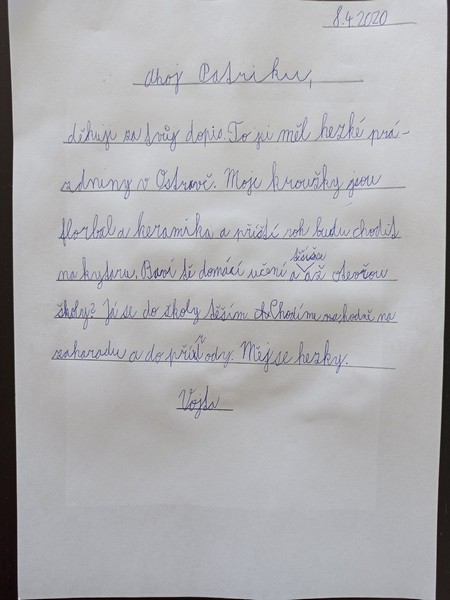 8.4.2020
Ahoj Patriku,
děkuji za tvůj dopis. To jsi měl hezké prá-
zdniny v Ostravě. Moje kroužky jsou
florbal a keramika a příští rok budu chodit
těšíšse
na kytaru. Baví tě domácí učení a až otevřou
školy? Já se do školy těším. Chodíme na
zaharadu a do přírody. Měj se hezky.
Vojta